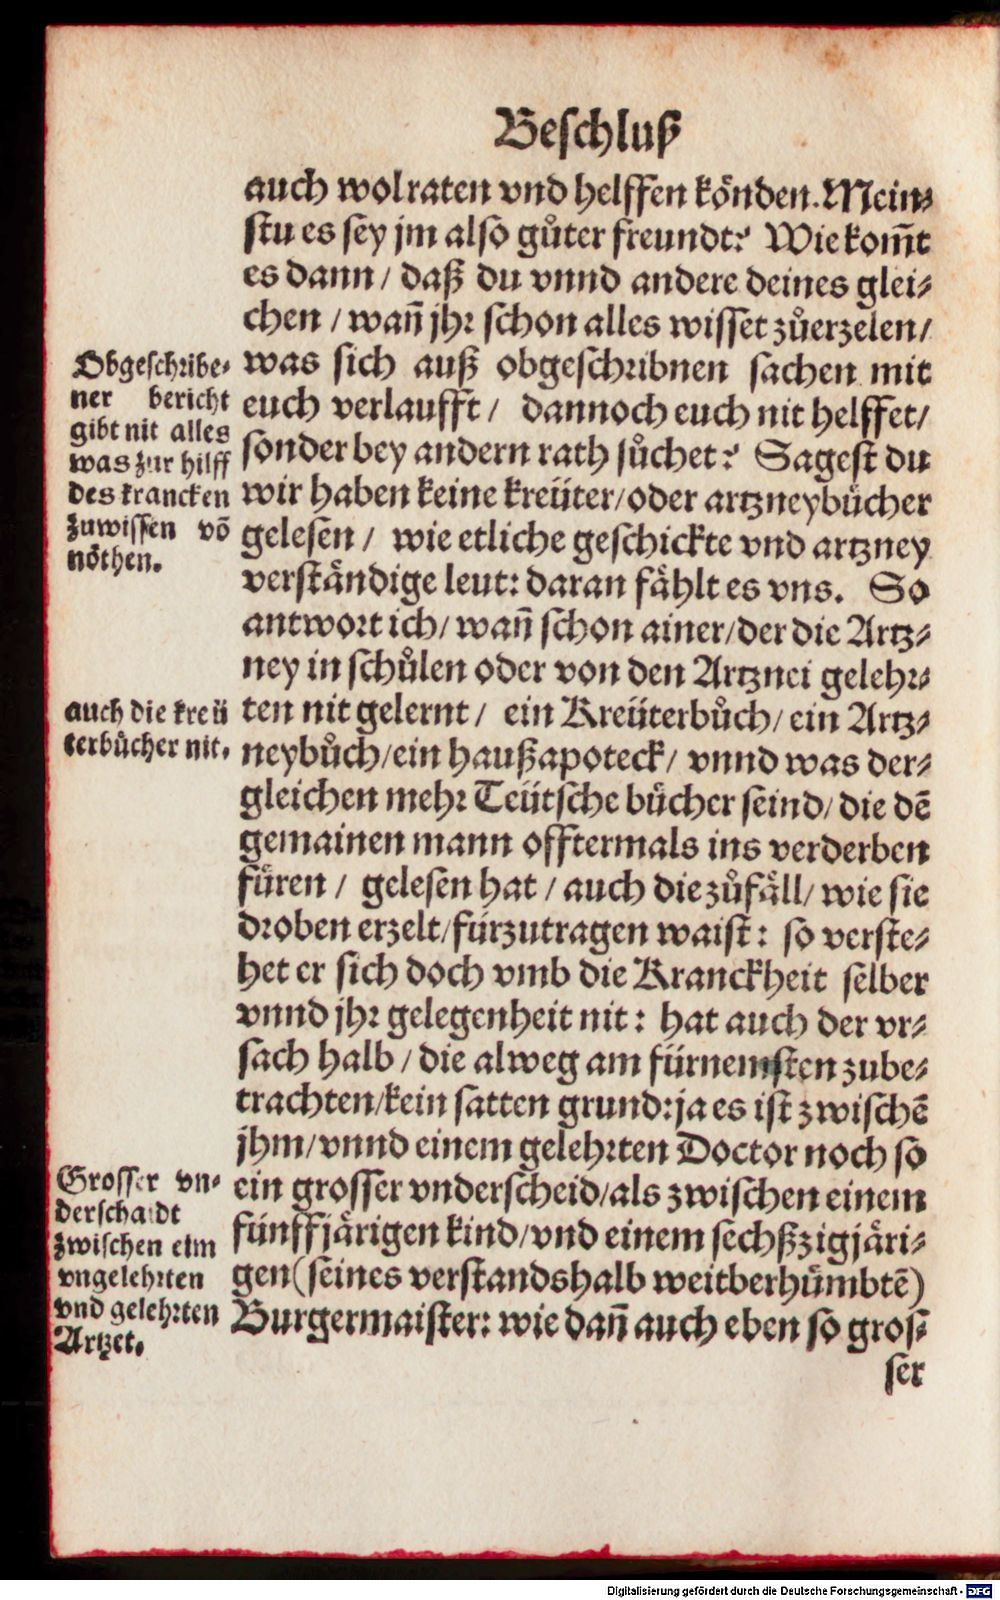 Beschluß
auch wolraten vnd helffen könden. Mein⸗
stu es sey jm also gůter freundt? Wie kom̃t
es dann / daß du vnnd andere deines glei⸗
chen / wañ jhr schon alles wisset zůerzelen /
was sich auß obgeschribnen sachen mit
euch verlaufft / dannoch euch nit helffet /
sonder bey andern rath sůchet? Sagest du
wir haben keine kreüter / oder artzneybücher
gelesen / wie etliche geschickte vnd artzney
verständige leut: daran fählt es vns. So
antwort ich / wañ schon ainer / der die Artz⸗
ney in schůlen oder von den Artznei gelehr⸗
ten nit gelernt / ein Kreüterbůch / ein Artz⸗
neybůch / ein haußapoteck / vnnd was der⸗
gleichen mehr Teütsche bücher seind / die dē
gemainen mann offtermals ins verderben
füren / gelesen hat / auch die zůfäll / wie sie
droben erzelt / fürzutragen waist: so verste⸗
het er sich doch vmb die Kranckheit selber
vnnd jhr gelegenheit nit: hat auch der vr⸗
sach halb / die alweg am fürnemsten zube⸗
trachten / kein satten grund: ja es ist zwischē
jhm / vnnd einem gelehrten Doctor noch so
ein grosser vnderscheid / als zwischen einem
fünffjärigen kind / vnd einem sechßzigjäri⸗
gen (seines verstandshalb weitberhümbtē)
Burgermaister: wie dañ auch eben so gros⸗
ser
Obgeschribe⸗
ner bericht
gibt nit alles
was zur hilff
des krancken
zuwissen vō
nöthen.
auch die kreü
terbücher nit.
Grosser vn⸗
derschaidt
zwischen eim
vngelehrten
vnd gelehrten
Artzet.
Digitalisierung gefördert durch die Deutsche Forschungsgemeinschaft - DFG